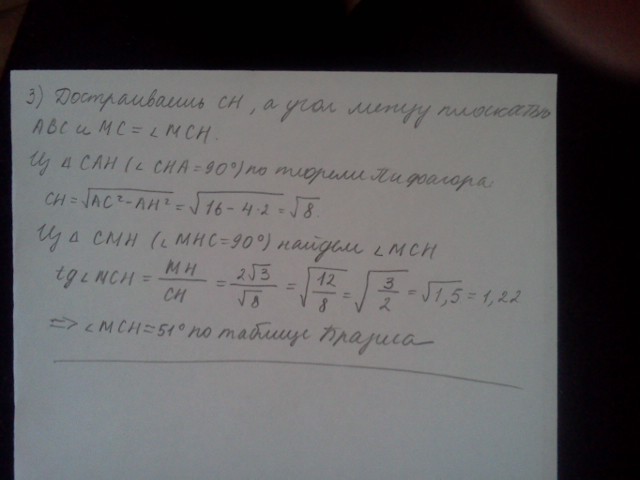 3) Достраиваешь CH, а угол между плоскостью
ABC и MC = ∠MCH.
Из △ CAH (∠ CHA = 90°) по теореме Пифагора:
CH = √AC² - AH² = √16 - 4·2 = √8.
Из △ CMH (∠ MHC = 90°) найдем ∠MCH
tg∠MCH = MH/CH = 2√3/√8 = √12/8 = √3/2 = √1,5 = 1,22
=> ∠MCH = 51° по таблице Брадиса